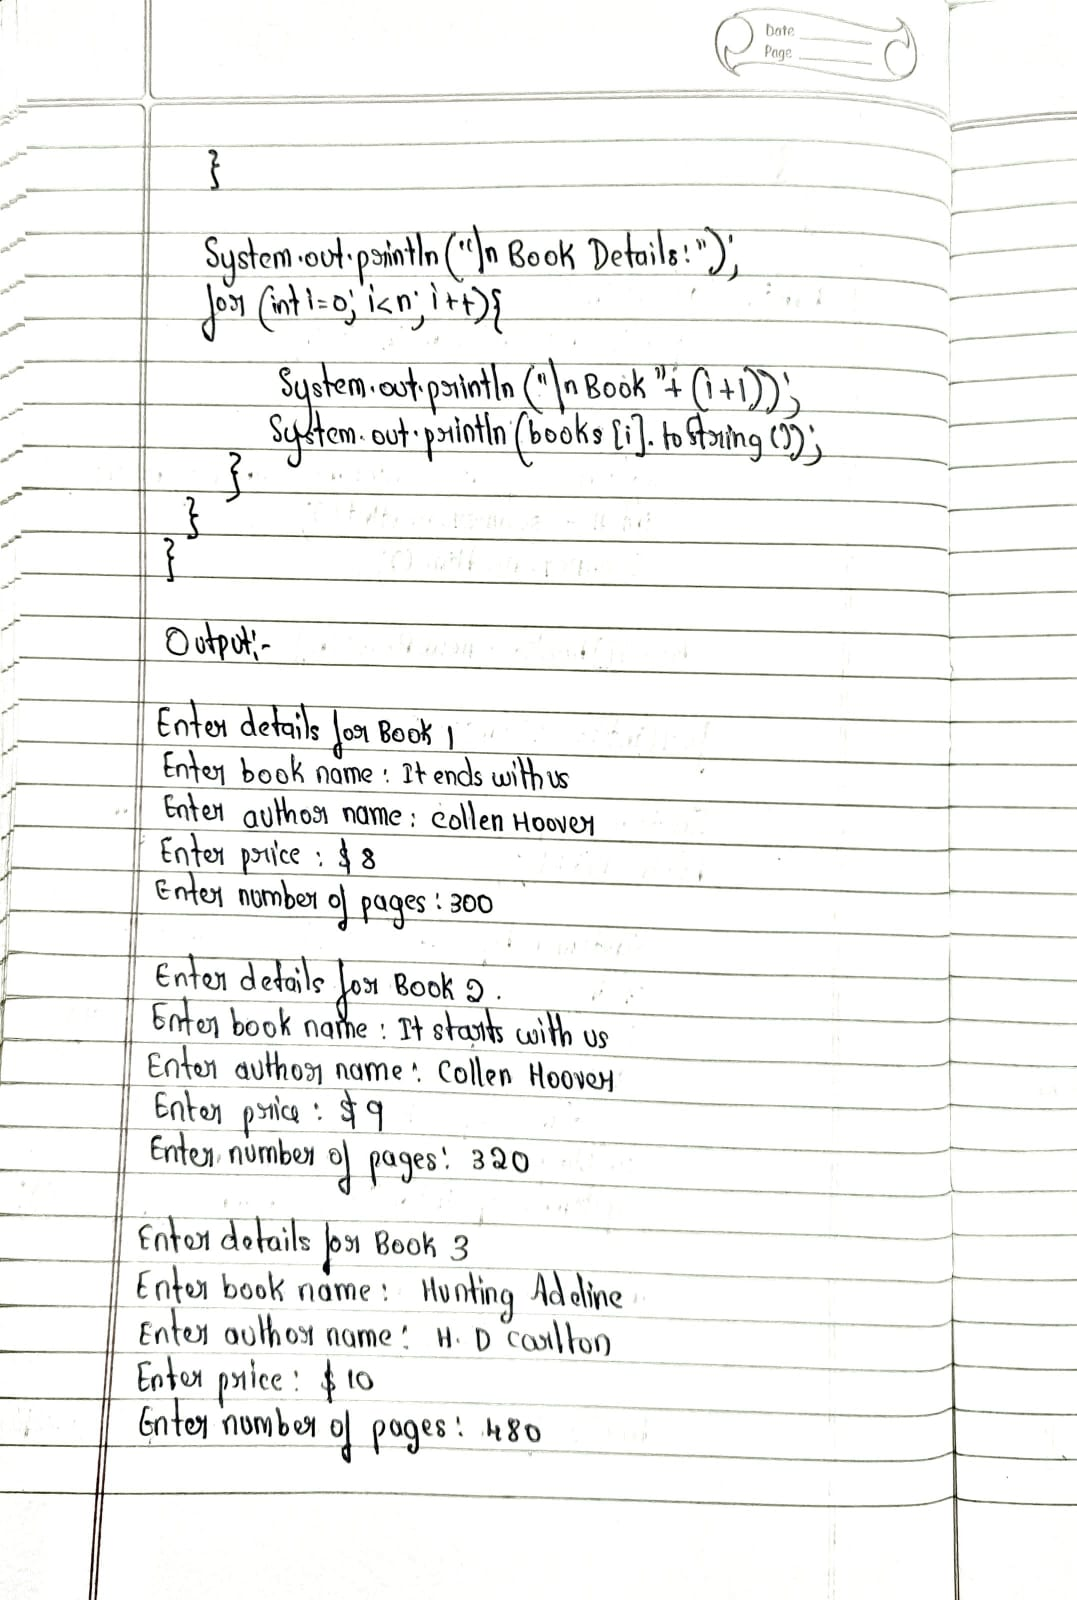 Date
Page
}
System.out.println("\n Book Details:");
for (int i=0; i<n; i++){
System.out.println("\n Book "+ (i+1));
System.out.println(books[i].toString());
}.
}
}
Output:-
Enter details for Book 1
Enter book name : It ends with us
Enter author name : Collen Hoover
Enter price : $ 8
Enter number of pages : 300
Enter details for Book 2.
Enter book name : It starts with us
Enter author name : Collen Hoover
Enter price : $ 9
Enter number of pages : 320
Enter details for Book 3
Enter book name : Hunting Adeline
Enter author name : H. D Carlton
Enter price : $ 10
Enter number of pages : 480